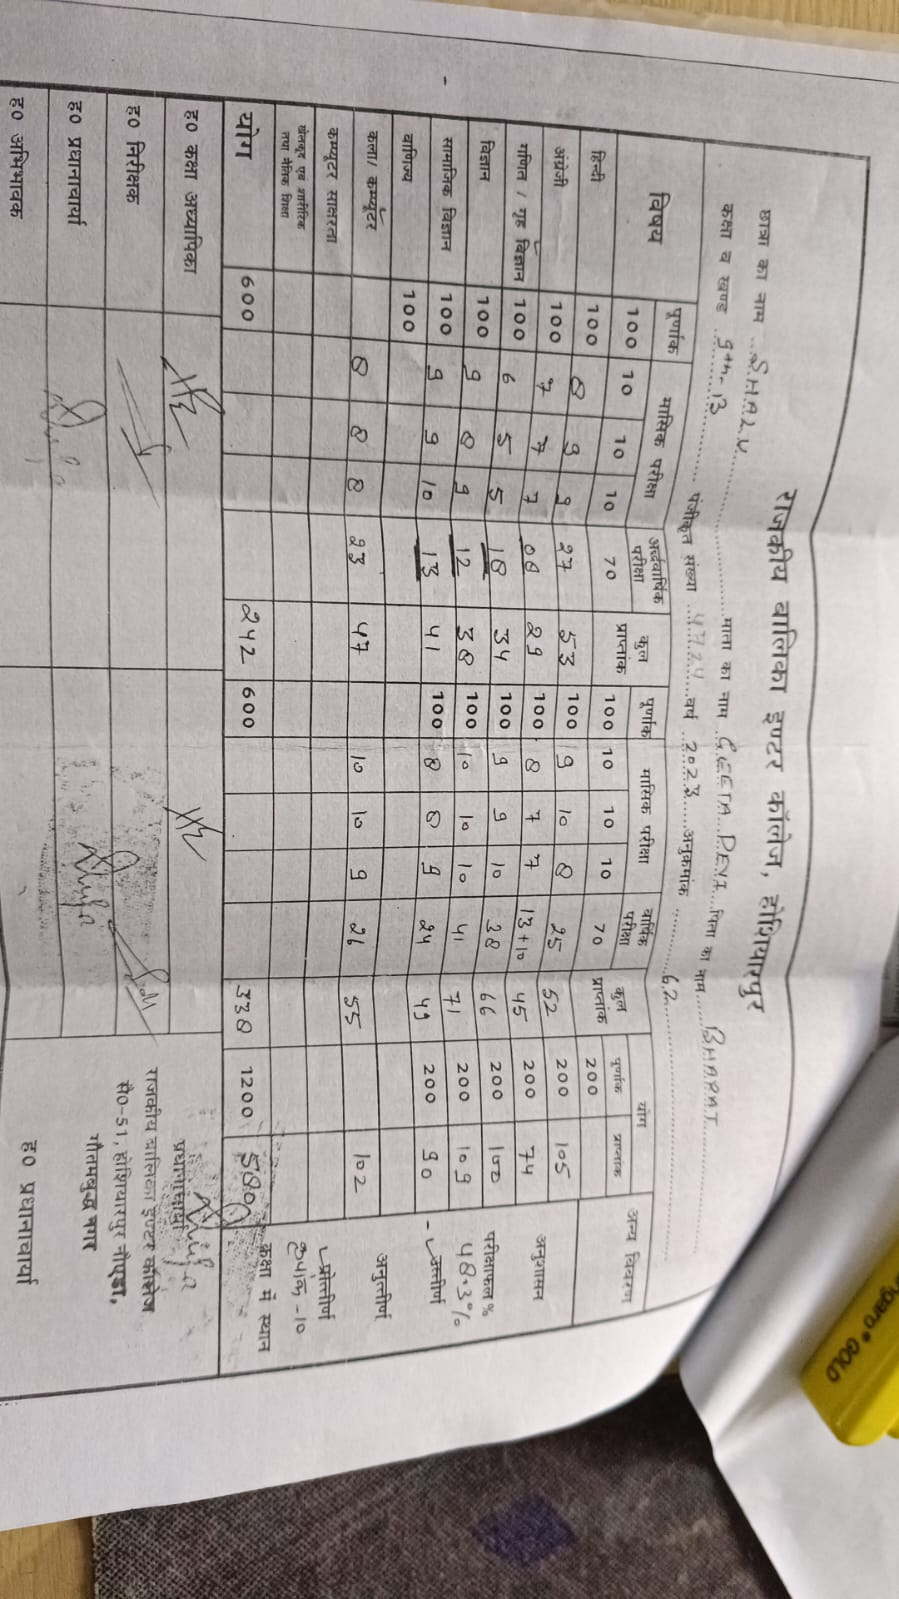 राजकीय बालिका इण्टर कॉलेज, होशियारपुर
छात्रा का नाम SHALU माता का नाम GEETA DEVI पिता का नाम BHARAT
कक्षा व खण्ड 9th-B पंजीकृत संख्या 4724 वर्ष 2023 अनुक्रमांक 62
विषय पूर्णांक मासिक परीक्षा अर्द्धवार्षिक परीक्षा कुल प्राप्तांक पूर्णांक मासिक परीक्षा वार्षिक परीक्षा कुल प्राप्तांक योग अन्य विवरण
पूर्णांक प्राप्तांक
100 10 10 10 70 100 10 10 10 70 200
हिन्दी 100 8 9 9 27 53 100 9 10 8 25 52 200 105
अंग्रेजी 100 7 7 7 08 29 100 8 7 7 13+10 45 200 74 अनुशासन
गणित / गृह विज्ञान 100 6 5 5 18 34 100 9 9 10 38 66 200 100
विज्ञान 100 9 8 9 12 38 100 10 10 10 41 71 200 109 परीक्षाफल % 48.3%
सामाजिक विज्ञान 100 9 9 10 13 41 100 8 8 9 24 49 200 90 उत्तीर्ण
वाणिज्य 100
कला/ कम्प्यूटर 8 8 8 23 47 10 10 9 26 55 102 अनुत्तीर्ण
कम्प्यूटर साक्षरता प्रोत्तीर्ण
खेलकूद एवं शारीरिक तथा नैतिक शिक्षा कृपांक - 10
योग 600 242 600 338 1200 580 कक्षा में स्थान
ह0 कक्षा अध्यापिका
ह0 निरीक्षक
ह0 प्रधानाचार्या
ह0 अभिभावक
प्रधानाचार्या
राजकीय बालिका इण्टर कॉलेज
सै0-51, होशियारपुर नौएडा,
गौतमबुद्ध नगर
ह0 प्रधानाचार्या
GOLD